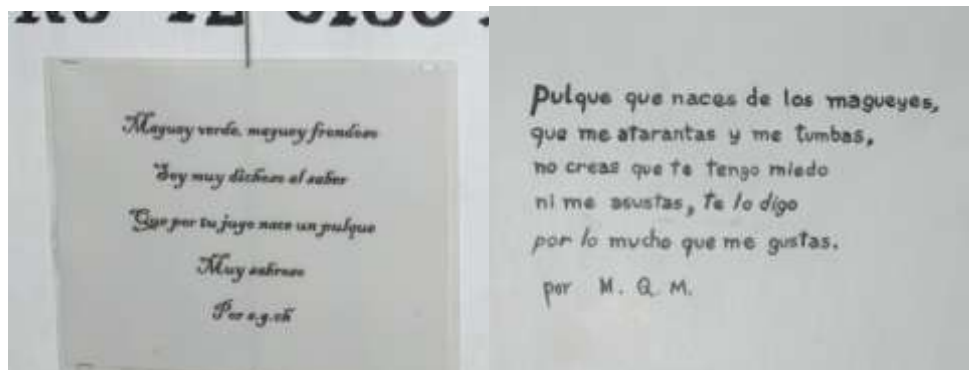 Maguey verde, maguey frondoso
Soy muy dichoso al saber
Que por tu jugo nace un pulque
Muy sabroso
Por o.g.ch
Pulque que naces de los magueyes,
que me atarantas y me tumbas,
no creas que te tengo miedo
ni me asustas, te lo digo
por lo mucho que me gustas.
por M. Q. M.